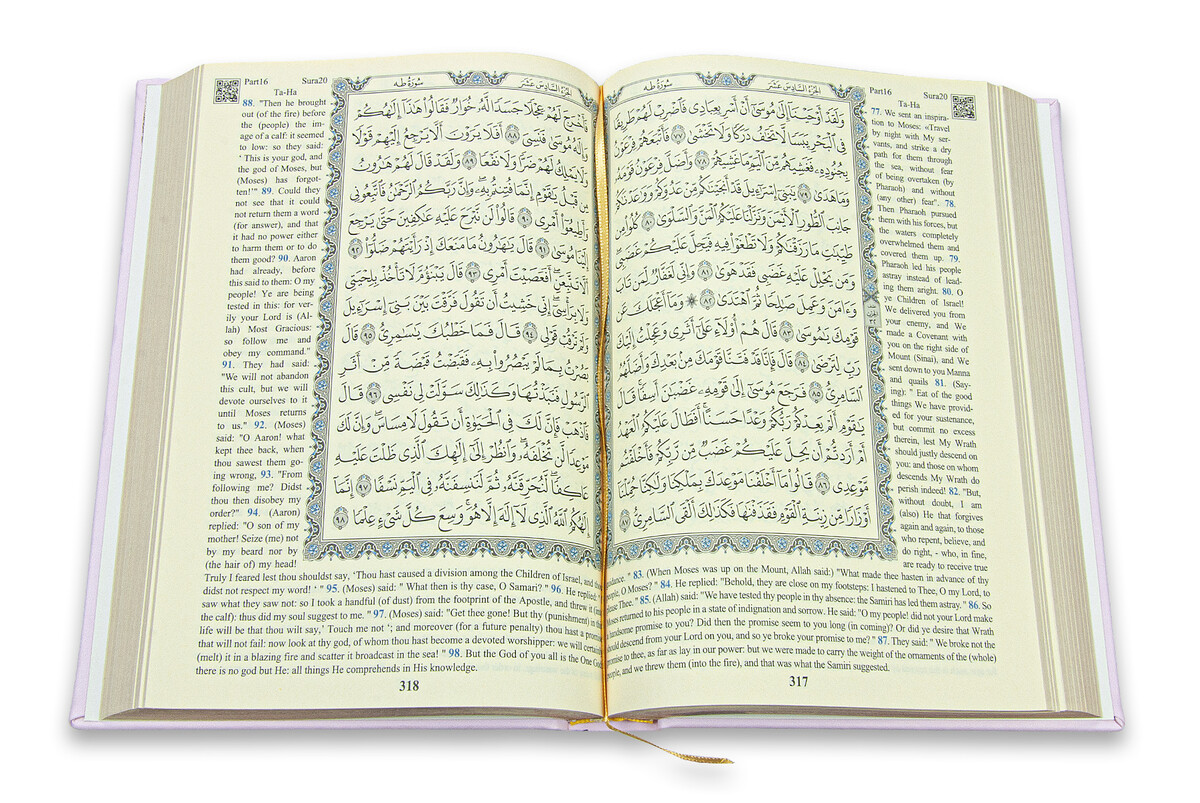 الجزء السادس عشر سورة طه
وَلَقَدْ أَوْحَيْنَآ إِلَىٰ مُوسَىٰٓ أَنْ أَسْرِ بِعِبَادِى فَٱضْرِبْ لَهُمْ طَرِيقًا
فِى ٱلْبَحْرِ يَبَسًا لَّا تَخَٰفُ دَرَكًا وَلَا تَخْشَىٰ ٧٧ فَأَتْبَعَهُمْ فِرْعَوْنُ
بِجُنُودِهِۦ فَغَشِيَهُم مِّنَ ٱلْيَمِّ مَا غَشِيَهُمْ ٧٨ وَأَضَلَّ فِرْعَوْنُ قَوْمَهُۥ
وَمَا هَدَىٰ ٧٩ يَٰبَنِىٓ إِسْرَٰٓءِيلَ قَدْ أَنجَيْنَٰكُم مِّنْ عَدُوِّكُمْ وَوَٰعَدْنَٰكُمْ
جَانِبَ ٱلطُّورِ ٱلْأَيْمَنَ وَنَزَّلْنَا عَلَيْكُمُ ٱلْمَنَّ وَٱلسَّلْوَىٰ ٨٠ كُلُوا۟ مِن
طَيِّبَٰتِ مَا رَزَقْنَٰكُمْ وَلَا تَطْغَوْا۟ فِيهِ فَيَحِلَّ عَلَيْكُمْ غَضَبِى
وَمَن يَحْلِلْ عَلَيْهِ غَضَبِى فَقَدْ هَوَىٰ ٨١ وَإِنِّى لَغَفَّارٌ لِّمَن تَابَ
وَءَامَنَ وَعَمِلَ صَٰلِحًا ثُمَّ ٱهْتَدَىٰ ٨٢ ۞ وَمَآ أَعْجَلَكَ عَن
قَوْمِكَ يَٰمُوسَىٰ ٨٣ قَالَ هُمْ أُو۟لَآءِ عَلَىٰٓ أَثَرِى وَعَجِلْتُ إِلَيْكَ
رَبِّ لِتَرْضَىٰ ٨٤ قَالَ فَإِنَّا قَدْ فَتَنَّا قَوْمَكَ مِنۢ بَعْدِكَ وَأَضَلَّهُمُ
ٱلسَّامِرِىُّ ٨٥ فَرَجَعَ مُوسَىٰٓ إِلَىٰ قَوْمِهِۦ غَضْبَٰنَ أَسِفًا قَالَ
يَٰقَوْمِ أَلَمْ يَعِدْكُمْ رَبُّكُمْ وَعْدًا حَسَنًا أَفَطَالَ عَلَيْكُمُ ٱلْعَهْدُ
أَمْ أَرَدتُّمْ أَن يَحِلَّ عَلَيْكُمْ غَضَبٌ مِّن رَّبِّكُمْ فَأَخْلَفْتُم
مَّوْعِدِى ٨٦ قَالُوا۟ مَآ أَخْلَفْنَا مَوْعِدَكَ بِمَلْكِنَا وَلَٰكِنَّا حُمِّلْنَآ
أَوْزَارًا مِّن زِينَةِ ٱلْقَوْمِ فَقَذَفْنَٰهَا فَكَذَٰلِكَ أَلْقَى ٱلسَّامِرِىُّ ٨٧
Part16 Sura20
Ta-Ha
77. We sent an inspira-
tion to Moses: «Travel
by night with My ser-
vants, and strike a dry
path for them through
the sea, without fear
of being overtaken (by
Pharaoh) and without
(any other) fear". 78.
Then Pharaoh pursued
them with his forces, but
the waters completely
overwhelmed them and
covered them up. 79.
Pharaoh led his people
astray instead of lead-
ing them aright. 80. O
ye Children of Israel!
We delivered you from
your enemy, and We
made a Covenant with
you on the right side of
Mount (Sinai), and We
sent down to you Manna
and quails 81. (Say-
ing): " Eat of the good
things We have provid-
ed for your sustenance,
but commit no excess
therein, lest My Wrath
should justly descend on
you: and those on whom
descends My Wrath do
perish indeed! 82. "But,
without doubt, I am
(also) He that forgives
again and again, to those
who repent, believe, and
do right, - who, in fine,
are ready to receive true
" 83. (When Moses was up on the Mount, Allah said:) "What made thee hasten in advance of thy
people, O Moses? " 84. He replied: "Behold, they are close on my footsteps: I hastened to Thee, O my Lord, to
please Thee. " 85. (Allah) said: "We have tested thy people in thy absence: the Samiri has led them astray." 86. So
Moses returned to his people in a state of indignation and sorrow. He said: "O my people! did not your Lord make
a handsome promise to you? Did then the promise seem to you long (in coming)? Or did ye desire that Wrath
should descend from your Lord on you, and so ye broke your promise to me? " 87. They said: " We broke not the
promise to thee, as far as lay in our power: but we were made to carry the weight of the ornaments of the (whole)
people, and we threw them (into the fire), and that was what the Samiri suggested.
317
الجزء السادس عشر سورة طه
فَأَخْرَجَ لَهُمْ عِجْلًا جَسَدًا لَّهُۥ خُوَارٌ فَقَالُوا۟ هَٰذَآ إِلَٰهُكُمْ
وَإِلَٰهُ مُوسَىٰ فَنَسِىَ ٨٨ أَفَلَا يَرَوْنَ أَلَّا يَرْجِعُ إِلَيْهِمْ قَوْلًا
وَلَا يَمْلِكُ لَهُمْ ضَرًّا وَلَا نَفْعًا ٨٩ وَلَقَدْ قَالَ لَهُمْ هَٰرُونُ
مِن قَبْلُ يَٰقَوْمِ إِنَّمَا فُتِنتُم بِهِۦ وَإِنَّ رَبَّكُمُ ٱلرَّحْمَٰنُ فَٱتَّبِعُونِى
وَأَطِيعُوٓا۟ أَمْرِى ٩٠ قَالُوا۟ لَن نَّبْرَحَ عَلَيْهِ عَٰكِفِينَ حَتَّىٰ يَرْجِعَ
إِلَيْنَا مُوسَىٰ ٩١ قَالَ يَٰهَٰرُونُ مَا مَنَعَكَ إِذْ رَأَيْتَهُمْ ضَلُّوٓا۟ ٩٢
أَلَّا تَتَّبِعَنِ أَفَعَصَيْتَ أَمْرِى ٩٣ قَالَ يَبْنَؤُمَّ لَا تَأْخُذْ بِلِحْيَتِى
وَلَا بِرَأْسِىٓ إِنِّى خَشِيتُ أَن تَقُولَ فَرَّقْتَ بَيْنَ بَنِىٓ إِسْرَٰٓءِيلَ
وَلَمْ تَرْقُبْ قَوْلِى ٩٤ قَالَ فَمَا خَطْبُكَ يَٰسَٰمِرِىُّ ٩٥ قَالَ
بَصُرْتُ بِمَا لَمْ يَبْصُرُوا۟ بِهِۦ فَقَبَضْتُ قَبْضَةً مِّنْ أَثَرِ
ٱلرَّسُولِ فَنَبَذْتُهَا وَكَذَٰلِكَ سَوَّلَتْ لِى نَفْسِى ٩٦ قَالَ
فَٱذْهَبْ فَإِنَّ لَكَ فِى ٱلْحَيَوٰةِ أَن تَقُولَ لَا مِسَاسَ وَإِنَّ لَكَ
مَوْعِدًا لَّن تُخْلَفَهُۥ وَٱنظُرْ إِلَىٰٓ إِلَٰهِكَ ٱلَّذِى ظَلْتَ عَلَيْهِ
عَاكِفًا لَّنُحَرِّقَنَّهُۥ ثُمَّ لَنَنسِفَنَّهُۥ فِى ٱلْيَمِّ نَسْفًا ٩٧ إِنَّمَآ
إِلَٰهُكُمُ ٱللَّهُ ٱلَّذِى لَآ إِلَٰهَ إِلَّا هُوَ وَسِعَ كُلَّ شَىْءٍ عِلْمًا ٩٨
Part16 Sura20
Ta-Ha
88. "Then he brought
out (of the fire) before
the (people) the im-
age of a calf: it seemed
to low: so they said:
' This is your god, and
the god of Moses, but
(Moses) has forgot-
ten!'" 89. Could they
not see that it could
not return them a word
(for answer), and that
it had no power either
to harm them or to do
them good? 90. Aaron
had already, before
this said to them: O my
people! Ye are being
tested in this: for ver-
ily your Lord is (Al-
lah) Most Gracious:
so follow me and
obey my command."
91. They had said:
"We will not abandon
this cult, but we will
devote ourselves to it
until Moses returns
to us." 92. (Moses)
said: "O Aaron! what
kept thee back, when
thou sawest them go-
ing wrong, 93. "From
following me? Didst
thou then disobey my
order?" 94. (Aaron)
replied: "O son of my
mother! Seize (me) not
by my beard nor by
(the hair of) my head!
Truly I feared lest thou shouldst say, 'Thou hast caused a division among the Children of Israel, and thou
didst not respect my word! ' " 95. (Moses) said: " What then is thy case, O Samari? " 96. He replied: "I
saw what they saw not: so I took a handful (of dust) from the footprint of the Apostle, and threw it (into
the calf): thus did my soul suggest to me. " 97. (Moses) said: "Get thee gone! But thy (punishment) in this
life will be that thou wilt say,' Touch me not '; and moreover (for a future penalty) thou hast a promise
that will not fail: now look at thy god, of whom thou hast become a devoted worshipper: we will certainly
(melt) it in a blazing fire and scatter it broadcast in the sea! " 98. But the God of you all is the One God:
there is no god but He: all things He comprehends in His knowledge.
318